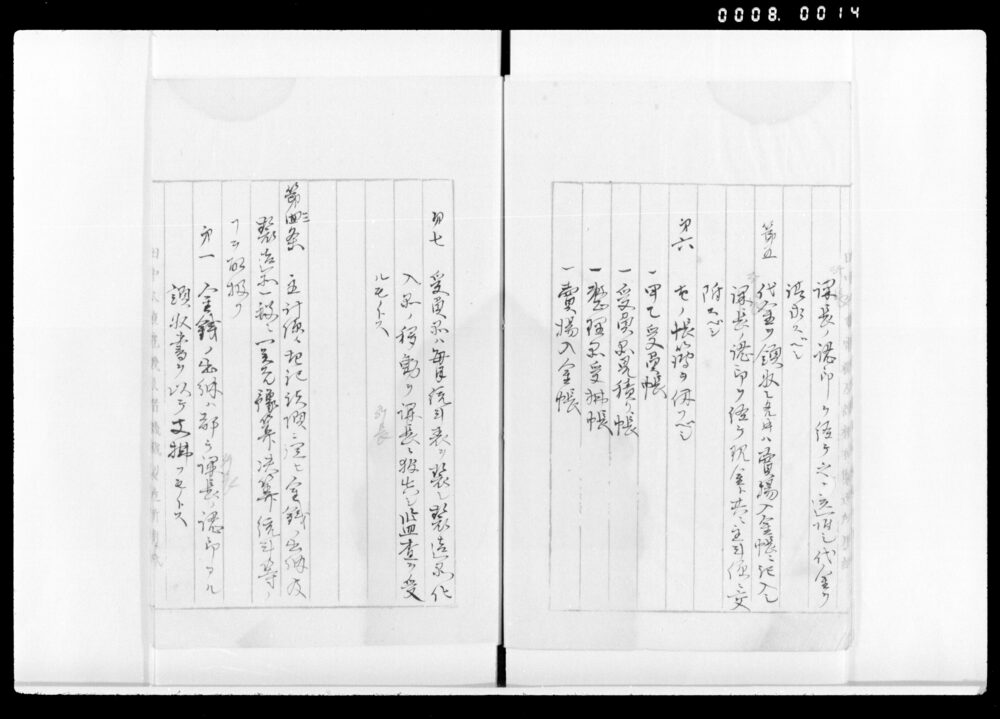 0008. 0014
課長ノ認印ヲ経テ之ニ送附シ代金ヲ
請求スヘシ
第五
代金ヲ領収シタル片ハ賣場入金帳ニ記入シ
課長ノ認印ヲ経テ現金ト共ニ主計係ニ交
附スヘシ
第六 左ノ帳簿ヲ備フヘシ
一 甲乙受負帳
一 受負品見積帳
一 整理品受拂帳
一 賣場入金帳
第七 受負品ハ毎月統計表ヲ製シ製造品代
入品ノ移動ヲ課長ニ報告シ監査ヲ受
ルモノトス
第三条 主計係ハ
製造品 豫算決算統計等
ヲ取扱フ
第一 金銭ノ出納ハ都テ課長ノ認印アル
領収書ヲ以テ支拂フモノトス